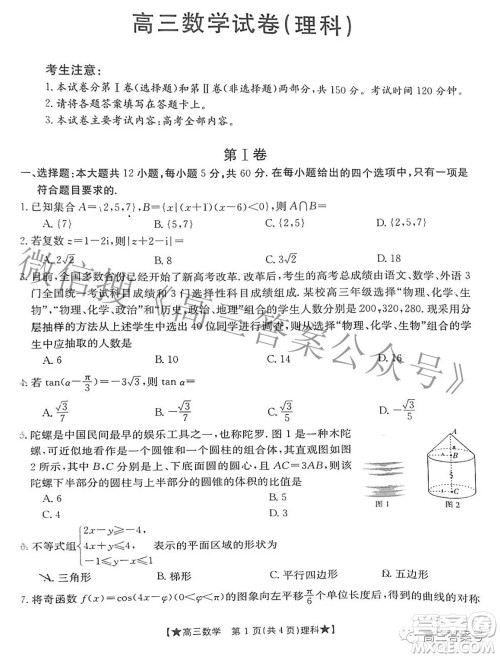 高三数学试卷(理科)
考生注意:
1.本试卷分第Ⅰ卷(选择题)和第Ⅱ卷(非选择题)两部分,共150分。考试时间120分钟。
2.请将各题答案填写在答题卡上。
3.本试卷主要考试内容:高考全部内容。
第Ⅰ卷
一、选择题:本大题共12小题,每小题5分,共60分.在每小题给出的四个选项中,只有一项是
符合题目要求的.
1.已知集合A={2,5,7},B={x|(x+1)(x-6)<0},则A∩B=
A.{7} B.{2,5} C.{5,7} D.{2,5,7}
2.若复数z=1-2i,则|z+2-i|=
A.2√3 B.6 C.3√2 D.18
3.月前,全国多数省份已经开始了新高考改革.改革后,考生的高考总成绩由语文、数学、外语3
门全国统一考试科目成绩和3门选择性科目成绩组成.某校高三年级选择“物理、化学、生
物”,“物理、化学、政治”和“历史、政治、地理”组合的学生人数分别是200,320,280.现采用分
层抽样的方法从上述学生中选出40位同学进行调查,则应从选择“物理、化学、生物”组合的学
生中应抽取的人数是
A.6 B.10 C.14 D.16
4.若tan(α-π/3)=-3√3,则tan α=
A.√3/7 B.-√3/7 C.√3/5 D.-√3/5
5.陀螺是中国民间最早的娱乐工具之一,也称陀罗.图1是一种木陀
螺,可近似地看作是一个圆锥和一个圆柱的组合体,其直观图如图
2所示,其中B,C分别是上、下底面圆的圆心,且AC=3AB,则该陀
螺下半部分的圆柱与上半部分的圆锥的体积的比值是
A.6 B.5
C.4 D.3
A
B
C
图1 图2
6.不等式组{2x-y≥-4, 4x+y≤4, -1≤y≤4 表示的平面区域的形状为
A.三角形 B.梯形 C.平行四边形 D.五边形
7.将奇函数f(x)=cos(4x+φ)(0<φ<π)的图象向左平移π/6个单位长度后,得到的曲线的对称
【★高三数学 第1页(共4页)理科★】
微信搜《高三答案公众号》
高三答案号